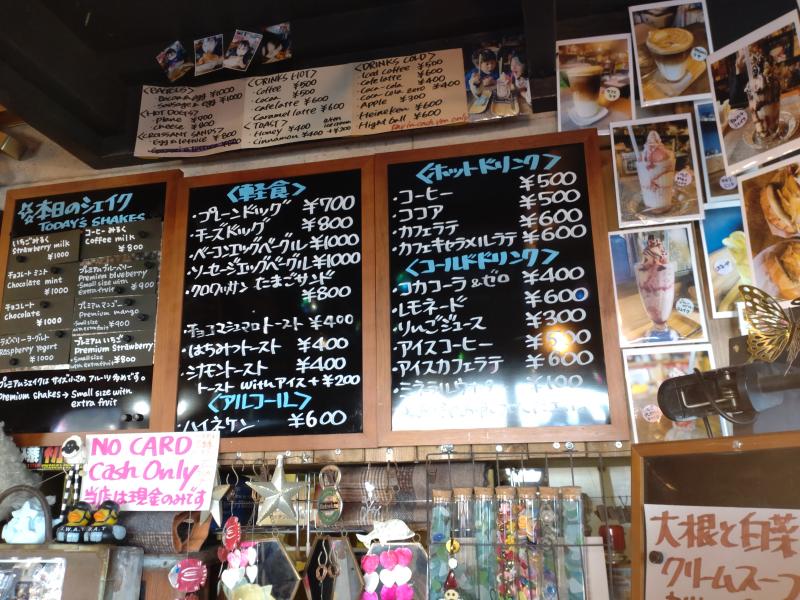 <BAGELS>
Bacon & egg ¥1000
Sausage & egg ¥1000
<HOT DOGS>
Plane ¥700
Cheese ¥800
<CROISSANT SANDS>
Egg & lettuce ¥800
<DRINKS HOT>
Coffee ¥500
Cocoa ¥500
Cafe latte ¥600
Caramel latte ¥600
<TOAST>
Honey ¥400
Cinnamon ¥400
<DRINKS COLD>
Iced coffee ¥500
Cafe latte ¥600
Coca-cola ¥400
Coca-Cola zero ¥400
Apple ¥300
Heineken ¥600
High ball ¥600
本日のシェイク
TODAY'S SHAKES
いちごみるく
Strawberry milk
¥1000
コーヒーみるく
Coffee milk
¥800
チョコレートミント
Chocolate mint
¥1000
プレミアムブルーベリー
Premium blueberry
Small size with
extra fruit ¥900
チョコレート
Chocolate
¥1000
プレミアムマンゴー
Premium mango
Small size
with extra fruit ¥900
ラズベリーヨーグルト
Raspberry yogurt
¥1000
プレミアムいちご
Premium Strawberry
Small size
with extra fruit ¥800
プレミアムシェイクは サイズ小さめ フルーツ多めです。
Premium shakes → Small size with
extra fruit
<軽食>
・プレーンドッグ ¥700
・チーズドッグ ¥800
・ベーコンエッグベーグル ¥1000
・ソーセージエッグベーグル ¥1000
・クロワッサン たまごサンド
¥800
・チョコマシュマロトースト ¥400
・はちみつトースト ¥400
・シナモントースト ¥400
トースト with アイス + ¥200
<アルコール>
・ハイネケン ¥600
<ホットドリンク>
・コーヒー ¥500
・ココア ¥500
・カフェラテ ¥600
・カフェキャラメルラテ ¥600
<コールドドリンク>
・コカコーラ&ゼロ ¥400
・レモネード ¥600
・りんごジュース ¥300
・アイスコーヒー ¥500
・アイスカフェラテ ¥600
・ミネラルウォーター
NO CARD
Cash Only
当店は現金のみです
大根と白菜
クリームスープ